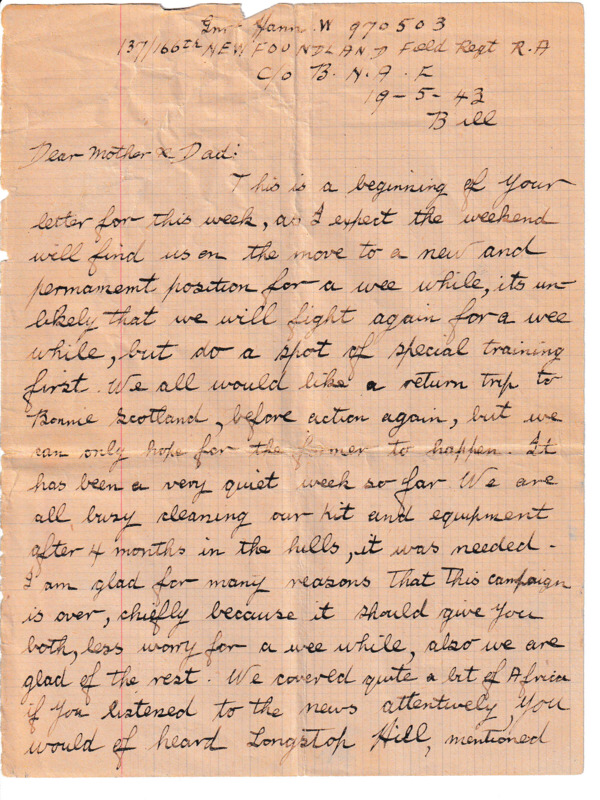 Gnr Hann. W 970503
137/166th NEWFOUNDLAND Field Regt R.A
C/o B.N.A.F
19-5-43
Bill
Dear Mother & Dad:
This is a beginning of your
letter for this week, as I expect the weekend
will find us on the move to a new and
permamemt position for a wee while, its un-
likely that we will fight again for a wee
while, but do a spot of special training
first. We all would like a return trip to
Bonnie Scotland, before action again, but we
can only hope for the former to happen. It
has been a very quiet week so far. We are
all busy cleaning our kit and equipment
after 4 months in the hills, it was needed.
I am glad for many reasons that this campaign
is over, chiefly because it should give you
both, less worry for a wee while, also we are
glad of the rest. We covered quite a bit of Africa
if you listened to the news attentively, you
would of heard Longstop Hill, mentioned